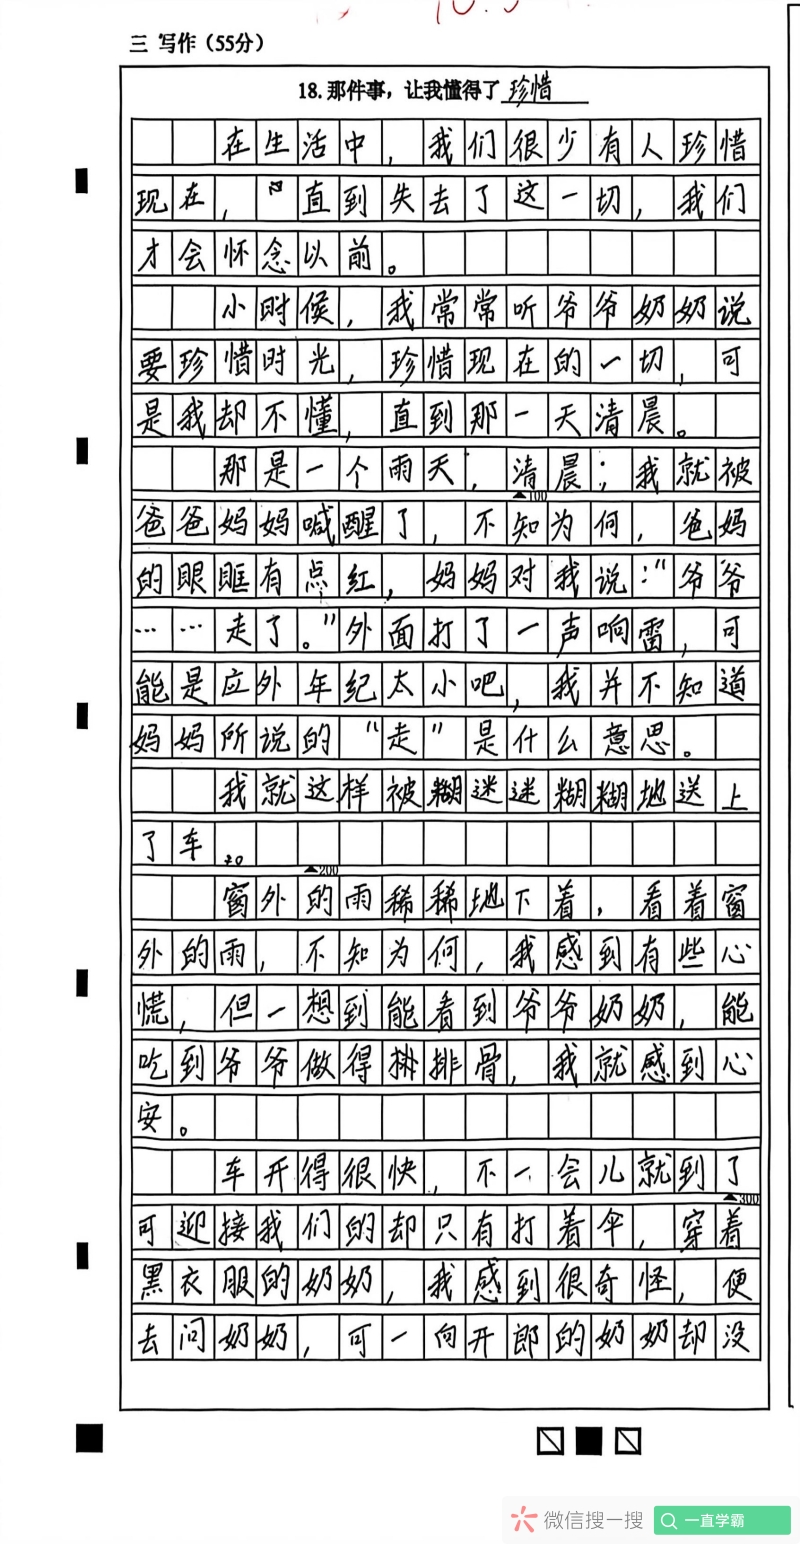 三 写作（55分）
18. 那件事，让我懂得了 珍惜
在生活中，我们很少有人珍惜
现在，直到失去了这一切，我们
才会怀念以前。
小时候，我常常听爷爷奶奶说
要珍惜时光，珍惜现在的一切，可
是我却不懂，直到那一天清晨。
那是一个雨天，清晨；我就被
▲100
爸爸妈妈喊醒了，不知为何，爸妈
的眼眶有点红，妈妈对我说：“爷爷
……走了。”外面打了一声响雷，可
能是应外年纪太小吧，我并不知道
妈妈所说的“走”是什么意思。
我就这样被糊迷迷糊糊地送上
了车。
▲200
窗外的雨稀稀地下着，看着窗
外的雨，不知为何，我感到有些心
慌，但一想到能看到爷爷奶奶，能
吃到爷爷做得排排骨，我就感到心
安。
车开得很快，不一会儿就到了
▲300
可迎接我们的却只有打着伞，穿着
黑衣服的奶奶，我感到很奇怪，便
去问奶奶，可一向开郎的奶奶却没
微信搜一搜
一直学霸